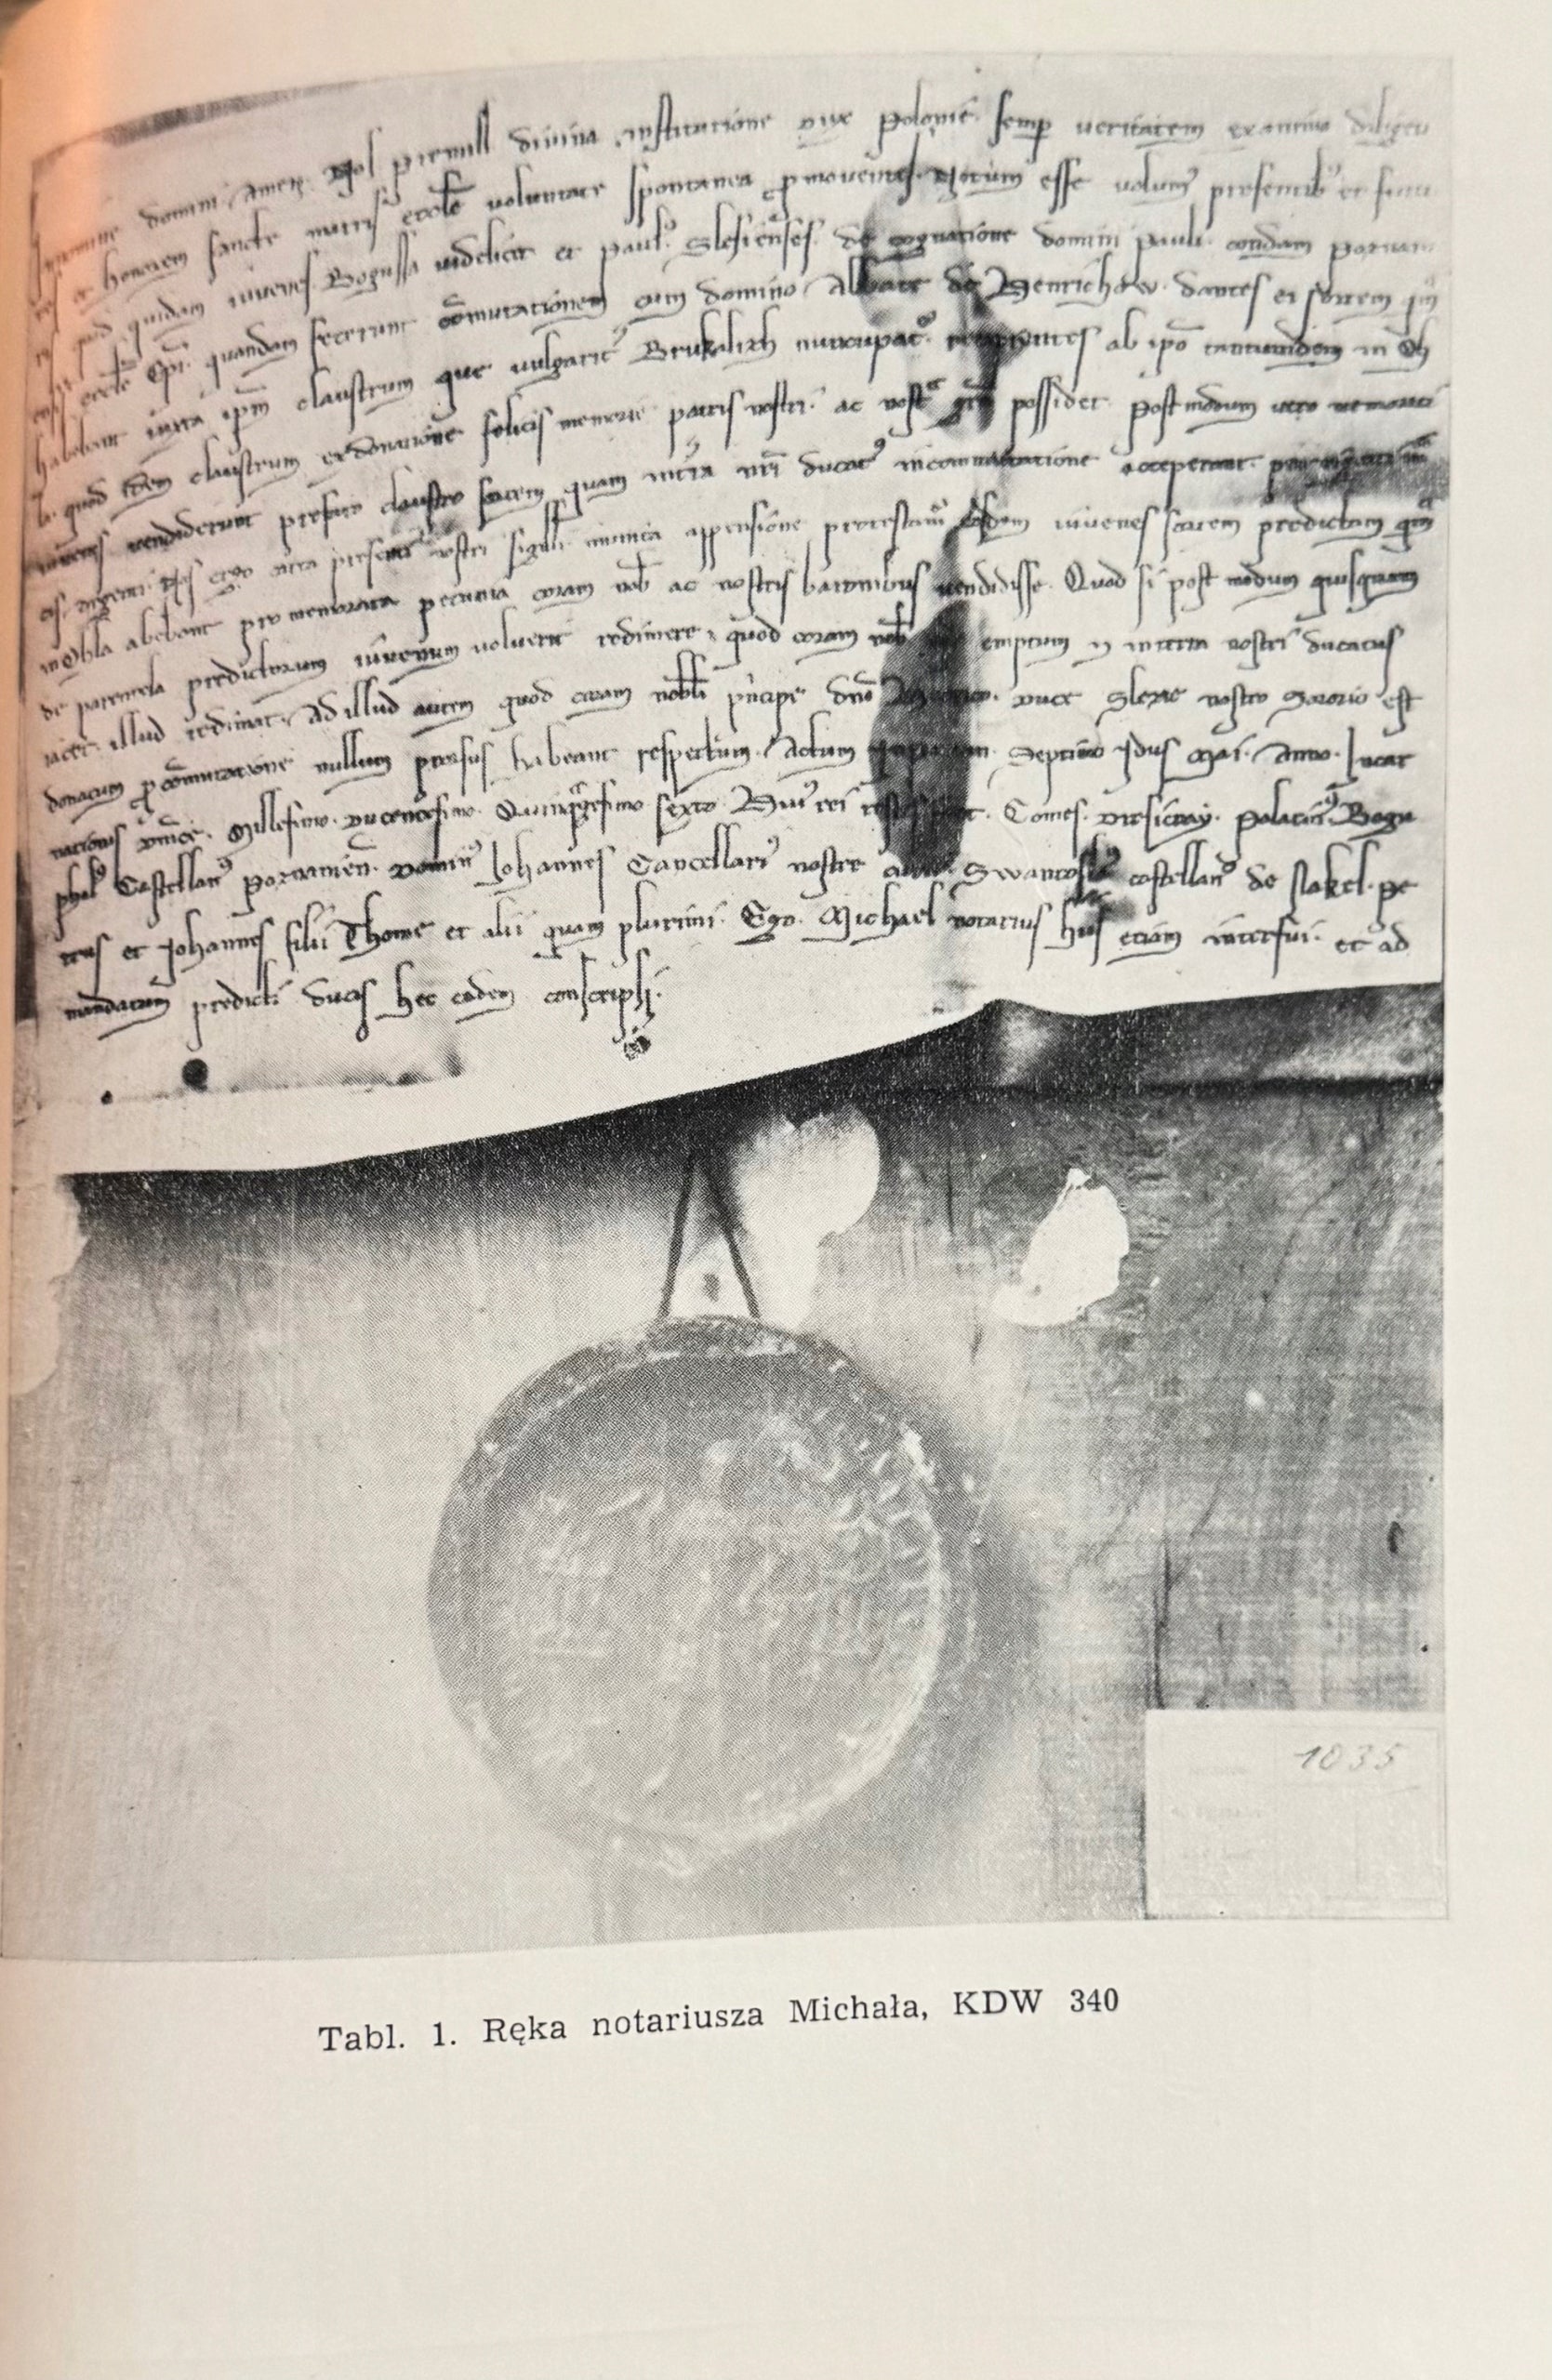 domini amen. Nos premisl divina institucione dux Polonie semp veritatem examino
et honorem sancte matris eccle voluntate spontanea promoventes. Notum esse volum presentib et futu
quod quidam iuvenes. Bogussa videlicet et paul Slesienses. de cognatione domini pauli condam poznani
ensis eccle Epi. quandam fecerunt comutationem cum domino Abbate de Henrichow. dantes ei sortem
habebant iuxta ipm claustrum que vulgarit Brukalizh nuncupat ab ipo tantundem in Oh
la. quod idem claustrum ex donatione felicis memorie patris nostri ac possidet. Postmodum vero memorati
iuvenes vendiderunt prefato claustro sortem quam intra nri ducat incommutatione acceperant.
cis argenti. Nos ergo nostri sigilli munita appensione protestam iuvenes sortem predictam
in Ohla abebant pro memorata pecunia coram nob ac nostris baronibus vendidisse. Quod si post modum quisquam
de parentela predictorum iuvenum voluerit redimere, quod coram nob emptum intra nostri ducatus
illud redimat. Ad illud autem quod coram nobli pncipe dno duce Slezie nostro Sororio est
donatum comutatione nullum prorsus habeant respectum. Actum Septimo Idus Mai. Anno. Incar
nationis dnice. Millesimo. ducentesimo. Quinqgesimo sexto. Hui rei testes Comes. Palatin. Bogu
phal Castellan Poznanien. Johannes Cancellari nostre Swantos castellan de Nakel. pe
trus et Johannes filii Thome et alii quam plurimi. Ego. Michael notarius hiis etiam interfui. et ad
mandatum predicti ducis hec eadem conscripsi.
1035
Tabl. 1. Ręka notariusza Michała, KDW 340